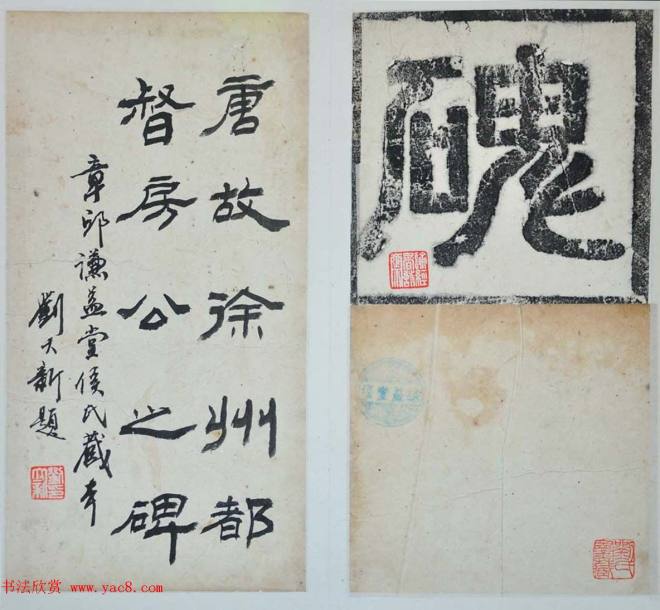 唐故徐州都
督房公之碑
章邱謙益堂侯氏藏本
劉大新題
书法欣赏 www.yac8.com